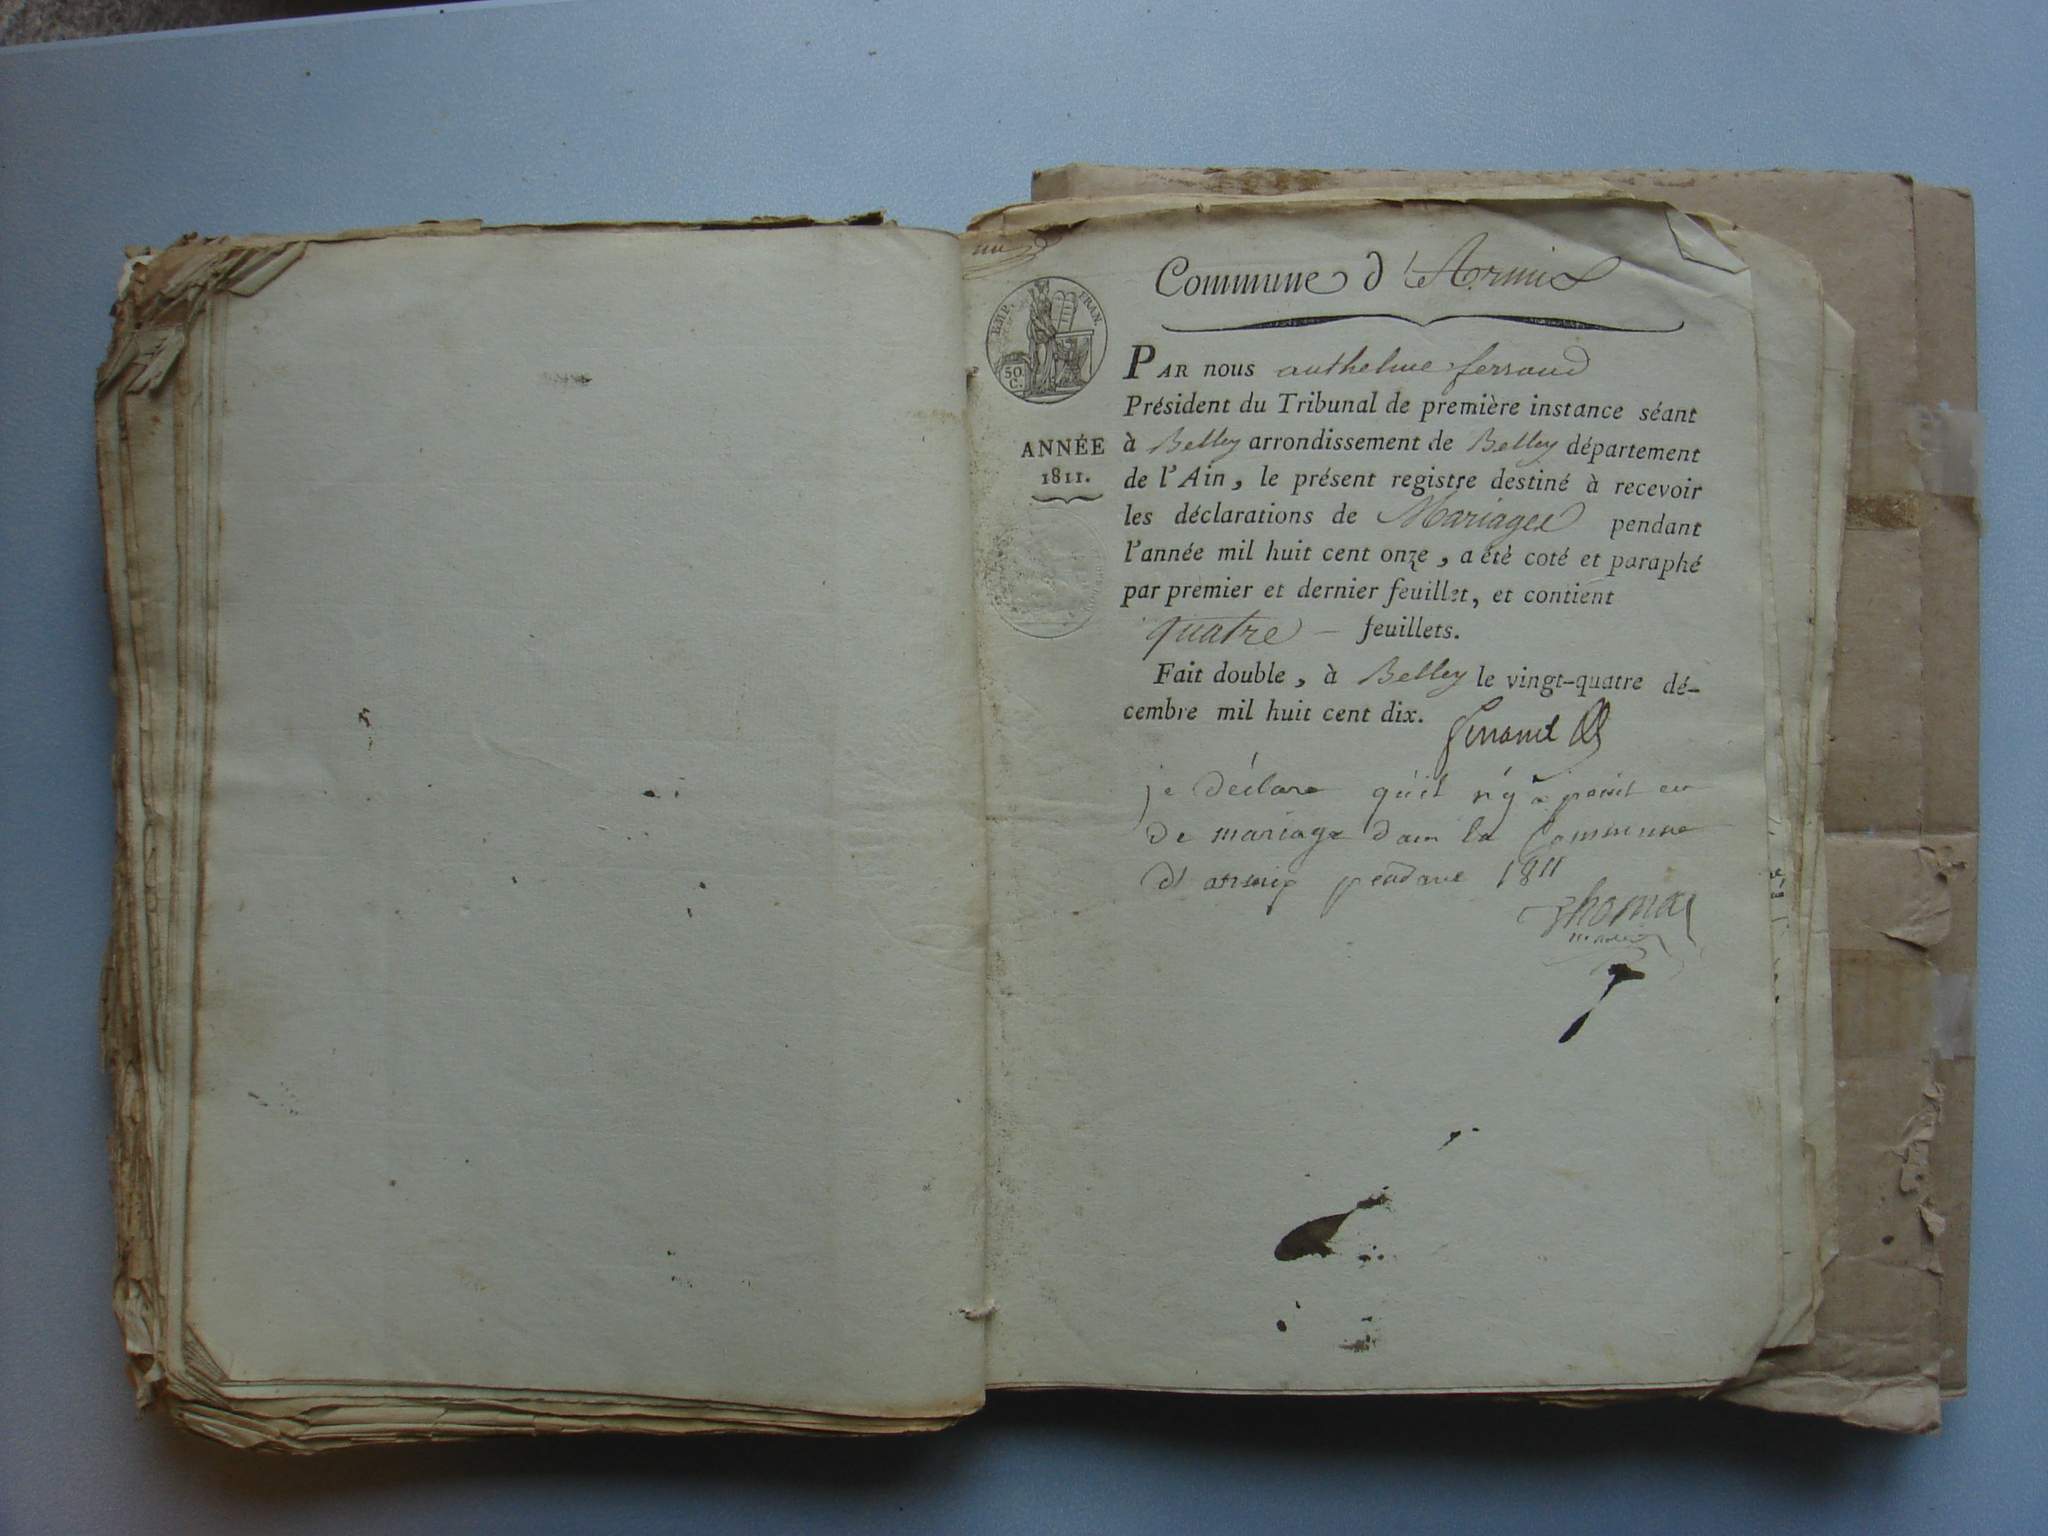 Commune d'Armix
EMP. FRAN.
50 C.
PAR nous anthelme ferrand
Président du Tribunal de première instance séant
ANNÉE
1811.
à Belley arrondissement de Belley département
de l'Ain, le présent registre destiné à recevoir
les déclarations de Mariages pendant
l'année mil huit cent onze, a été coté et paraphé
par premier et dernier feuillet, et contient
quatre – feuillets.
Fait double, à Belley le vingt-quatre dé-
cembre mil huit cent dix.
ferrand
je déclare qu'il n'y a point eu
de mariage dans la Commune
d'armix pendant 1811
Thomas